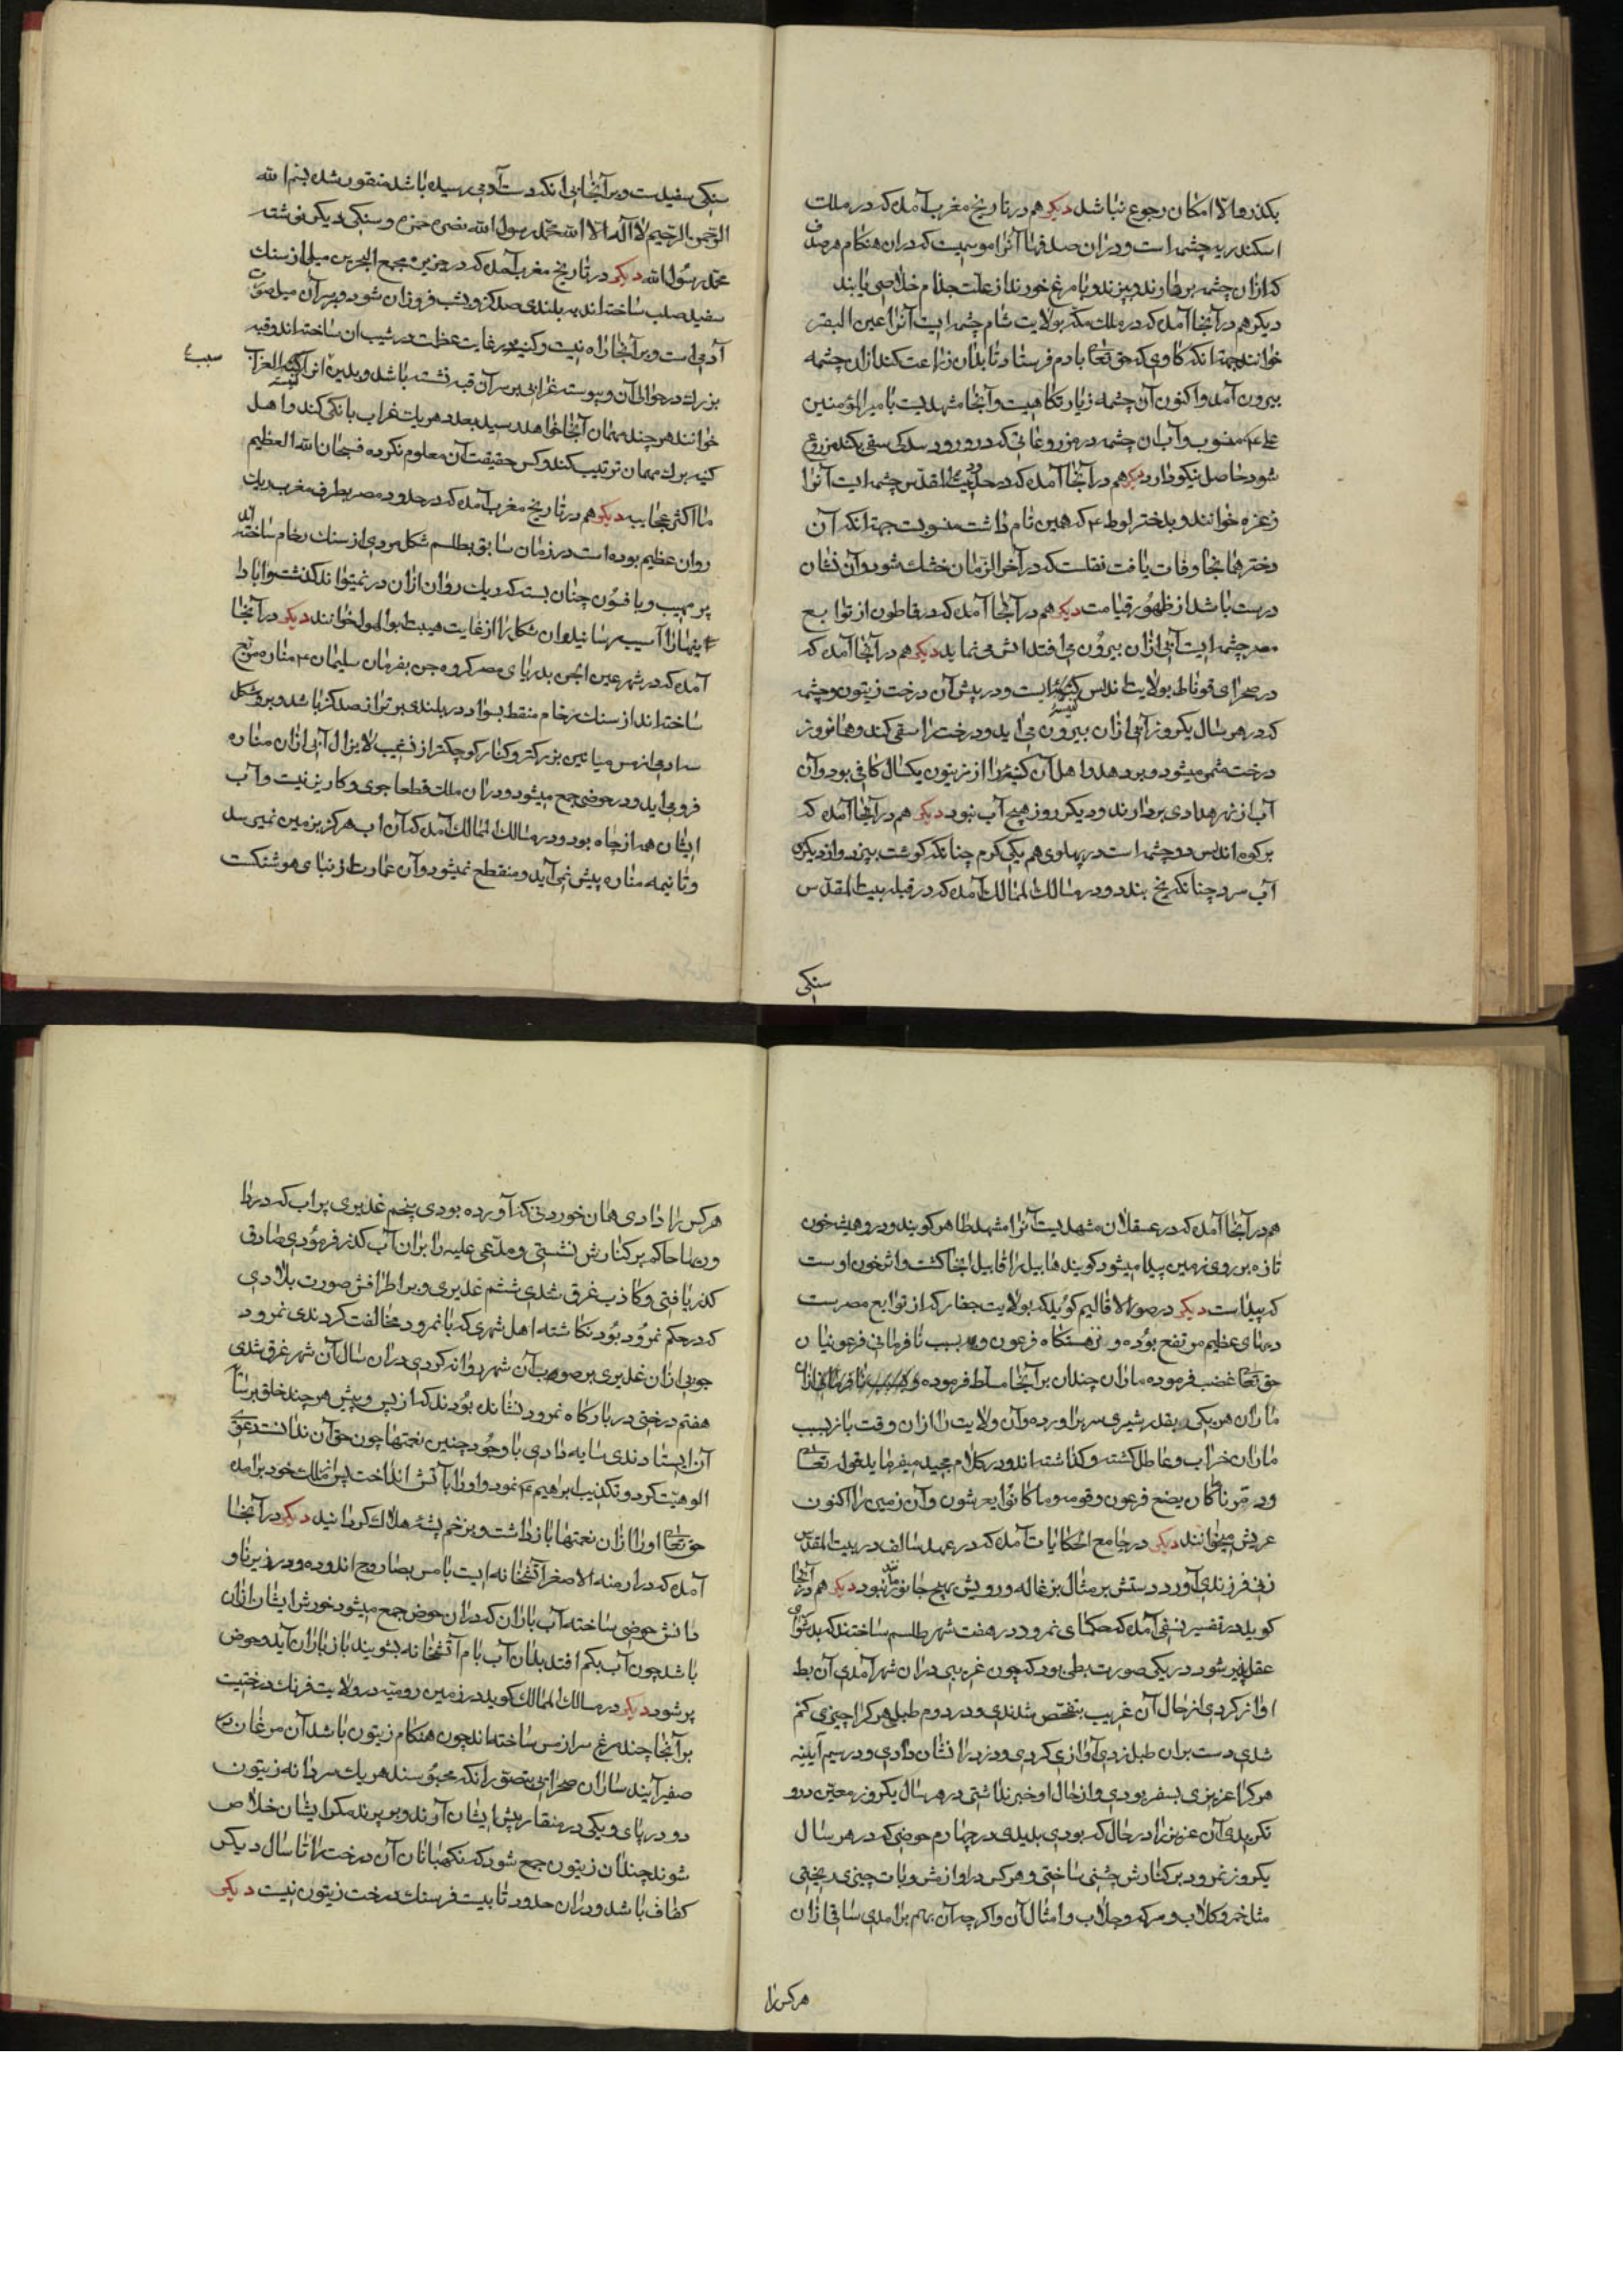 بکذرد والا امکان رجوع نباشد دیکر هم در تاریخ مغرب آمده که در ملک
اسکندریه چشمه است و دران صدفها آنرا موسمیست که دران هنکام هر صدف
که ازان چشمه بردارند و بپزند و با مرغ خورند از علت جذام خلاصی یابند
دیکر هم در آنجا آمده که در ملک مکه بولایت شام چشمه ایست آنرا عین البقر
خوانند جهة انکه کاوی که حق تعا بادم فرستاد تا بدان زراعت کند ازان چشمه
بیرون آمد واکنون آن چشمه زیارتکاهیست وآنجا مشهدیست بامیرالمؤمنین
علی ء منسوب وآب ان چشمه در مزروعاتی که درو رود سدکی سقی بکند مزروع
شود حاصل نیکو دارد دیکر هم در آنجا آمده که در حد بیت المقدس چشمه ایست آنرا
زغزه خوانند و بدختر لوط ء که همین نام داشت منسوبست جهة انکه آن
دختر همانجا وفات یافت نقلست که در آخر الزمان خشک شود وآن نشان
درست باشد از ظهور قیامت دیکر هم در آنجا آمده که در قاطون از توابع
مصر چشمه ایست آبی ازان بیرون می افتد اتش می نماید دیکر هم در آنجا آمده که
در صحرای قوناط بولایت اندلس کنیسه ایست و در پیش آن درخت زیتون و چشمه
که در هر سال یکروز آبی ازان بیرون می اید و درخت را سقی کند و همانروز
درخت مثمر میشود و بر دهد و اهل آن کنیسه را از زیتون یکسال کافی بود وآن
آب از شهر هدادی بردارند و دیکر روز هیچ آب نبود دیکر هم در آنجا آمده که
بر کوه اندلس دو چشمه است در پهلوی هم یکی کرم چنانکه کوشت بپزد واز دیکری
آب سرد چنانکه یخ بندد و در مسالک الممالک آمده که در قبله بیت المقدس
سنکی
سنکی سفیدست و بر آنجا بی انکه دست آدمی رسیده باشد منقور شده بسم الله
الرحمن الرحیم لا اله الا الله محمد رسول الله نصره حمزه و سنکی دیکر نوشته
محمد رسول الله دیکر در تاریخ مغرب آمده که در جزیره مجمع البحرین میلی از سنک
سفید صلب ساخته اند به بلندی صد کز و بشب فروزان شود و بر سر آن میل صورت
آدمی است و بر آنجا راه نیست و کنیسه در غایت عظمت در شیب ان ساخته اند و قبه
سببے
بزرک در حوالی آن و پیوسته غرابی بر سر آن قبه نشسته باشد و بدین انرا کنیسة الغراب
خوانند هر چند مهمان آنجا خواهد رسید بعدد هریک غراب بانکی کند و اهل
کنیسه برک مهمان ترتیب کنند و کس حقیقت آن معلوم نکرده فسبحان الله العظیم
ما اکثر عجایبه دیکر هم در تاریخ مغرب آمده که در حدود مصر بطرف مغرب ریک
روان عظیم بوده است در زمان سابق بطلسم شکل مردی از سنک رخام ساخته اند
پر مهیب و بافسون چنان بسته که ریک روان ازان در نمیتواند کذشت و ابادا
نیها را آسیب رسانید و ان شکل را از غایت هیبت ابوالهول خوانند دیکر در آنجا
آمده که در شهر عین الجن بدریای مصر کروه جن بفرمان سلیمان ء مناره مربع
ساخته اند از سنک رخام منقط بسواد در بلندی برتر از صد کز باشد و برو شکل
سه ادمی از مس میانین بزرکتر و کنار کوچکتر از غیب لایزال آبی ازان مناره
فرو می اید و در حوضی جمع میشود و دران ملک قطعا جوی و کاریز نیست و آب
ایشان همه از چاه بود و در مسالک الممالک آمده که آن اب هرکز بزمین نمیرسد
و تا نیمه مناره پیش نمی آید و منقطع نمیشود وآن عمارت از بنای هوشنکست
هم در آنجا آمده که در عسقلان مشهدیست آنرا مشهد طاهر کویند و درو همیشه خون
تازه بر روی زمین پیدا میشود کویند هابیل را قابیل انجا کشت و اثر خون اوست
که پیداست دیکر در صور الاقالیم کوید که بولایت جفار که از توابع مصرست
دیهای عظیم مرتفع بوده و نزهتکاه فرعون و بسبب نافرمانی فرعونیان
حق تعا غضب فرموده ماران چندان بر آنجا مسلط فرموده
ماران هر یکی بقدر شیری سر براورده وآن ولایت را ازان وقت باز بسبب
ماران خراب و عاطل کشته و کذاشته اند و در کلام مجید میفرماید قوله تعالی
ودمرنا ما کان یصنع فرعون وقومه وما کانوا یعرشون وآن زمین را اکنون
عریش میخوانند دیکر در جامع الحکایات آمده که در عهد سالف در بیت المقدس
زنی فرزندی آورد دستش بر مثال بزغاله و رویش بهیچ جانور مانند نبود دیکر هم در آنجا
کوید در تفسیر نسفی آمده که حکمای نمرود در هفت شهر طلسم ساختند که بدشواری
عقل پذیر شود در یکی صورت بطی بود که چون غریبی دران شهر آمدی آن بط
اواز کردی از حال آن غریب متفحص شدندی و در دوم طبلی هر کرا چیزی کم
شدی دست بران طبل زدی آوازی کردی و دزد را نشان دادی و در سیم آیینه
هر کرا عزیزی بسفر بودی و از حال او خبر نداشتی در هر سال یکروز معین درو
نکریدی آن عزیز را در حال که بودی بدیدی در چهارم حوضی که در هر سال
یکروز نمرود بر کنارش جشنی ساختی و هر کس درا و ازش و بات چیزی ریختی
مثل خمر و کلاب و سرکه و جلاب و امثال آن و اکر چه آن بهم برامدی ساقی ازان
هر کس را
هر کس را دادی همان خوردنی که آورده بودی پنجم غدیری پر اب که در دا
وریها حاکم بر کنارش نشستی و مدعی علیه را بران آب کذر فرمودی صادق
کذر یافتی و کاذب غرق شدی ششم غدیری و بر اطرافش صورت بلادی
که در حکم نمرود بود نکاشته اهل شهری که با نمرود مخالفت کردندی نمرود
جویی ازان غدیری بر صورت آن شهر روانه کردی دران سال آن شهر غرق شدی
هفتم درختی در بارکاه نمرود نشانده بودند که از پس و پیش هر چند خلق بر سایه
آن ایستادندی سایه دادی با وجود چنین نعمتها چون حق آن ندانست دعوی
الوهیت کرد و تکذیب ابراهیم ء نمود و او را بآتش انداخت پس از ملک خود برامد
حق تعا او را ازان نعمتها باز داشت و بزخم پشه هلاک کردانید دیکر در آنجا
آمده که در ارمنه الاصغر آتشخانه ایست بامس بصاروج اندوده و در زیر ناو
دانش حوضی ساخته آب باران که دران حوض جمع میشود خورش ایشان ازان
باشد چون آب بکم افتد بدان آب بام آتشخانه بشویند باز باران آید و حوض
پر شود دیکر در مسالک الممالک کوید در زمین رومیه در ولایت فرنک درختیست
بر آنجا چند مرغ سار از مس ساخته اند چون هنکام زیتون باشد آن مرغان در
صفیر آیند ساران صحرایی بتصور انکه محبوسند هر یک سه دانه زیتون
دو در پای و یکی در منقار پیش ایشان آورند و بر پرند مکر ایشان خلاص
شوند چندان زیتون جمع شود که نکهبانان آن درخت را تا سال دیکر
کفاف باشد و دران حدود تا بیست فرسنک درخت زیتون نیست دیکر